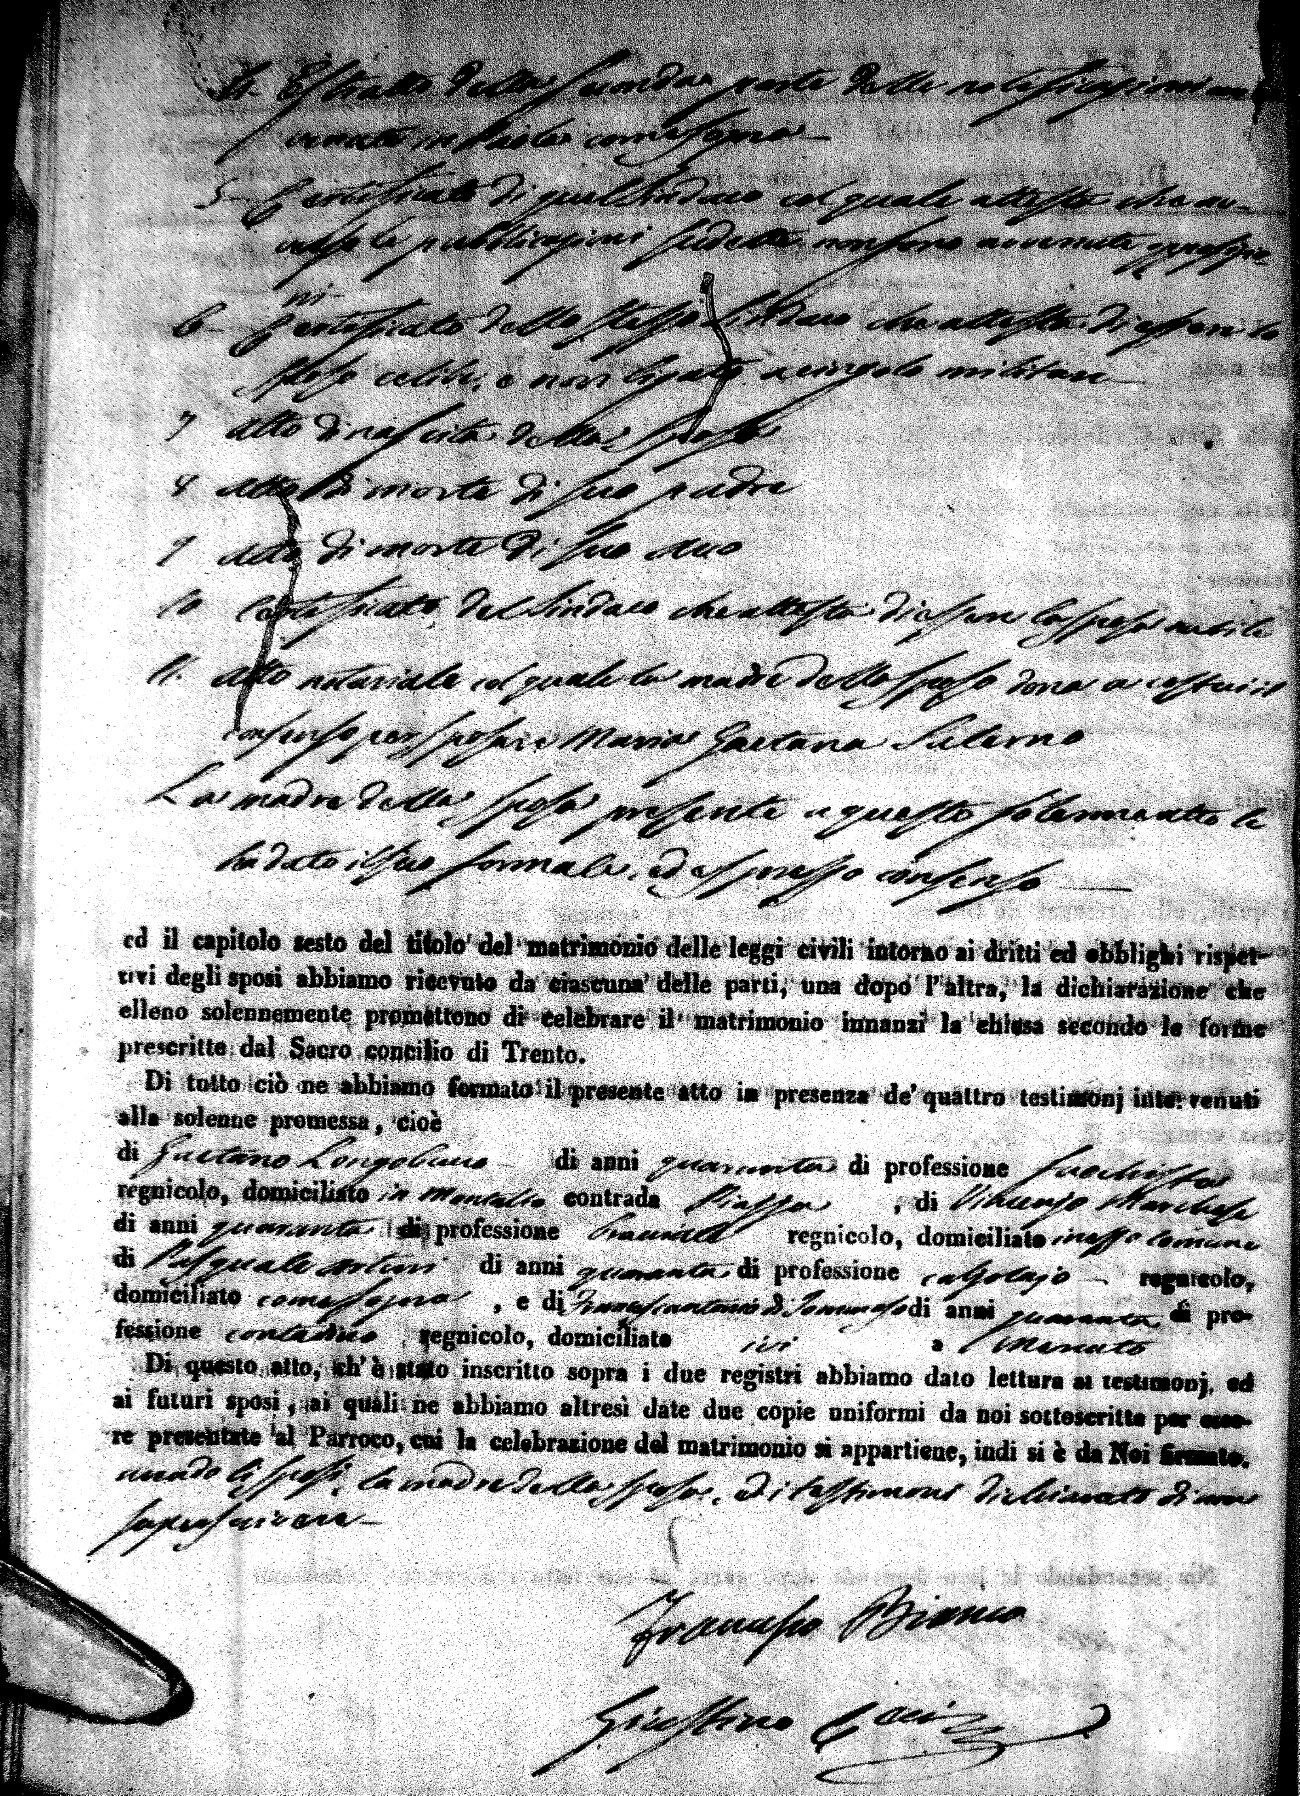 4. Estratto della seconda parte delle notificazioni av-
venute in Paola come sopra —
5- Certificato di quel Sindaco col quale attesta che av-
verso le pubblicazioni sudette non sono avvenute opposizio-
ni-
6- Certificato dello stesso Sindaco che attesta di essere lo
sposo celibe, e non ligato a cingolo militare —
7 Atto di nascita della sposa
8 Atto di morte di suo padre
9 Atto di morte di suo avo
10 Certificato del Sindaco che attesta di essere la sposa nubile
11. Atto notariale col quale la madre dello sposo dona a costui il
consenso per sposare Maria Gaetana Salerno
La madre della sposa presente a questo solenne atto le
ha dato il suo formale, ed espresso consenso —
ed il capitolo sesto del titolo del matrimonio delle leggi civili intorno ai dritti ed obblighi rispet-
tivi degli sposi abbiamo ricevuto da ciascuna delle parti, una dopo l'altra, la dichiarazione che
elleno solennemente promettono di celebrare il matrimonio innanzi la chiesa secondo le forme
prescritte dal Sacro concilio di Trento.
Di tutto ciò ne abbiamo formato il presente atto in presenza de' quattro testimonj intervenuti
alla solenne promessa, cioè
di Gaetano Longobucco di anni quaranta di professione
regnicolo, domiciliato in Montalto contrada Piazza , di Vincenzo Marchese
di anni quaranta di professione regnicolo, domiciliato in esso Comune
di Pasquale di anni quaranta di professione calzolajo — regnicolo,
domiciliato come sopra , e di Francescantonio di Tommaso di anni quaranta di pro-
fessione contadino regnicolo, domiciliato ivi a
Di questo atto, ch' è stato inscritto sopra i due registri abbiamo dato lettura ai testimonj, ed
ai futuri sposi, ai quali ne abbiamo altresì date due copie uniformi da noi sottoscritte per esse-
re presentate al Parroco, cui la celebrazione del matrimonio si appartiene, indi si è da Noi firmato.
avendo li sposi, la madre della sposa, ed i testimoni dichiarato di non
saper scrivere —
Francesco Bianco
Giustino